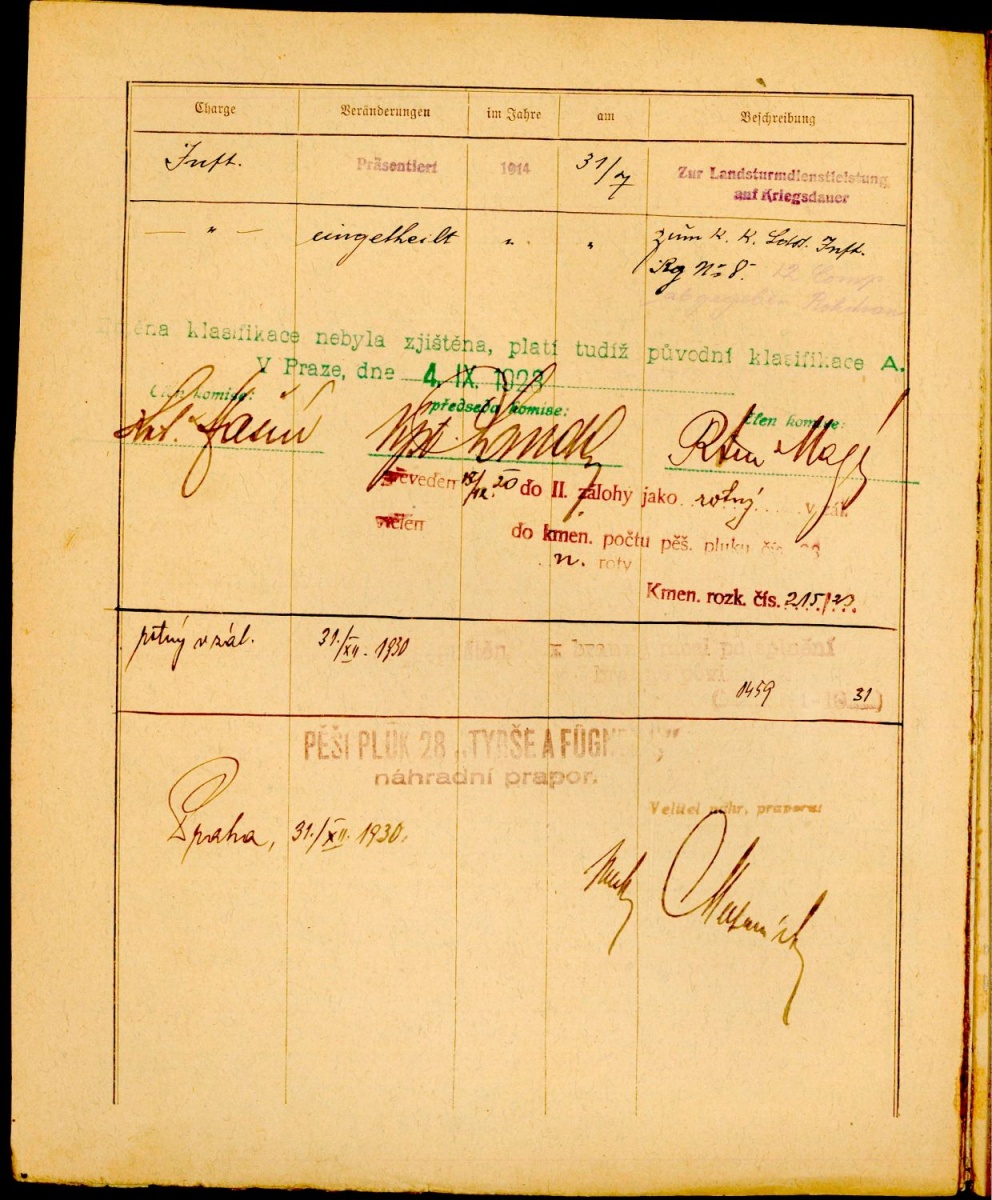 Charge Veränderungen im Jahre am Beschreibung
Inft. Präsentiert 1914 31/7 Zur Landsturmdienstleistung
auf Kriegsdauer
— " — eingetheilt " " zum K. K. Ldst. Inft.
Rg No 8. 12 Comp
klasifikace nebyla zjištěna, platí tudíž původní klasifikace A.
V Praze, dne 4. IX. 1923
Člen komise: předseda komise: člen komise:
do II. zálohy jako rotný v zál.
do kmen. počtu pěš. pluku čís.
n. roty
Kmen. rozk. čís. 215/23
rotný v zál. 31./XII. 1930
1459 31
PĚŠÍ PLUK 28 „TYRŠE A
náhradní prapor.
Velitel náhr. praporu:
Praha, 31./XII. 1930.